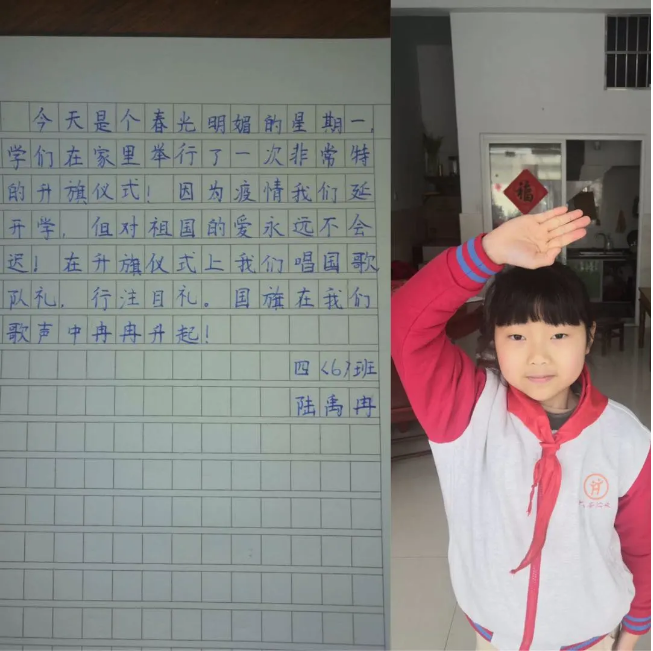 今天是个春光明媚的星期一，
学们在家里举行了一次非常特
的升旗仪式！因为疫情我们延
开学，但对祖国的爱永远不会
迟！在升旗仪式上我们唱国歌
队礼，行注目礼。国旗在我们
歌声中冉冉升起！
四〈6〉班
陆禹冉
福